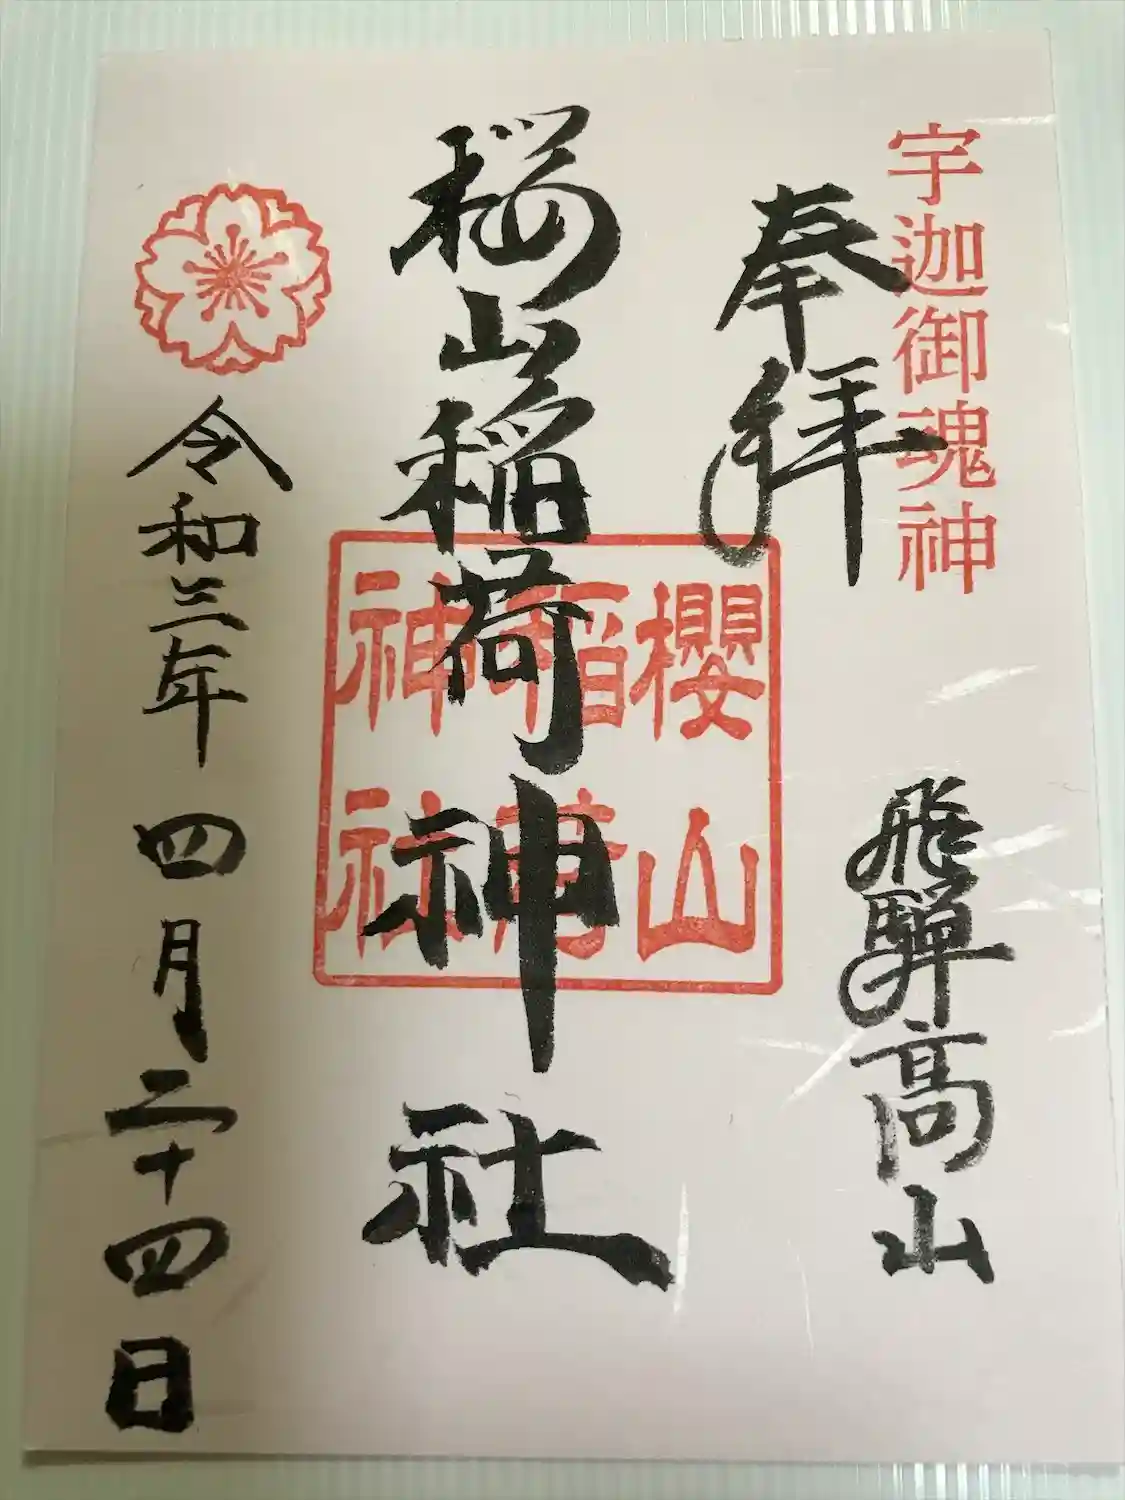 宇迦御魂神
奉拝
飛騨高山
桜山稲荷神社
櫻山
稲荷
神社
令和三年四月二十四日